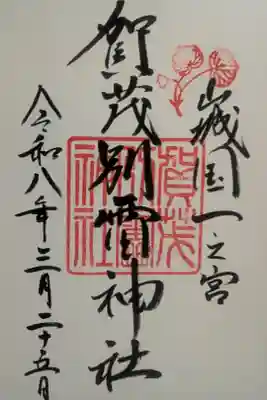 山城国一之宮
賀茂別雷神社
令和八年三月二十五日
賀茂別雷神社